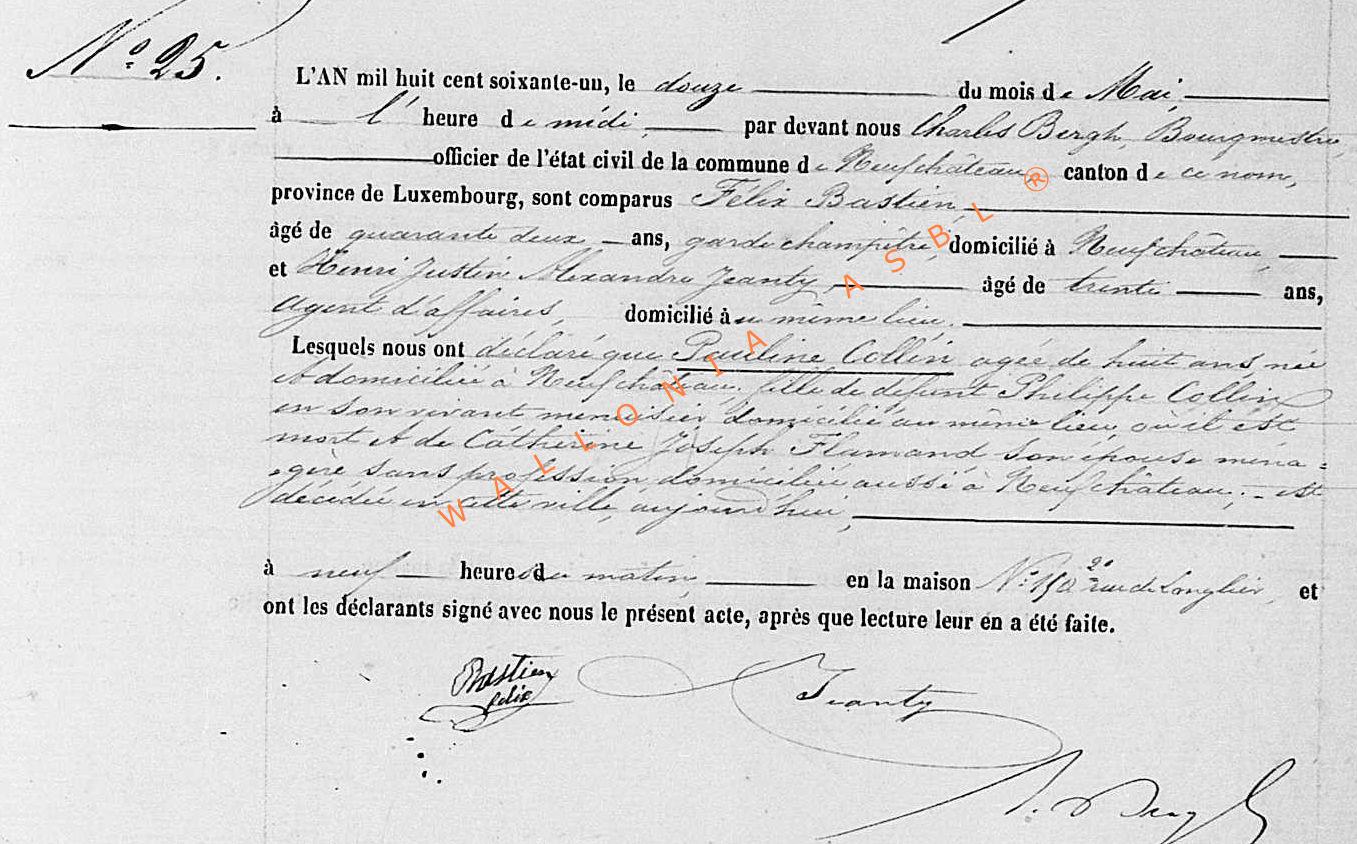 N° 25.
L'AN mil huit cent soixante-un, le douze du mois de Mai,
à l' heure de midi, par devant nous Charles Bergh, Bourgmestre,
officier de l'état civil de la commune de Neufchâteau, canton de ce nom,
province de Luxembourg, sont comparus Félix Bastien,
âgé de quarante deux ans, garde champêtre, domicilié à Neufchâteau,
et Henri Justin Alexandre Jeanty âgé de trente ans,
agent d'affaires, domicilié au même lieu.
Lesquels nous ont déclaré que Pauline Collin agée de huit ans née
et domiciliée à Neufchâteau, fille de défunt Philippe Collin
en son vivant menuisier domicilié au même lieu où il est
mort et de Catherine Joseph Flamand son épouse ména=
gère sans profession, domiciliée aussi à Neufchâteau; est
décédée en cette ville, aujourd'hui,
à neuf heures du matin, en la maison N° 150 2° rue de Longlier, et
ont les déclarants signé avec nous le présent acte, après que lecture leur en a été faite.
Bastien
felix
Jeanty
Bergh
WALLONIA ASBL ®